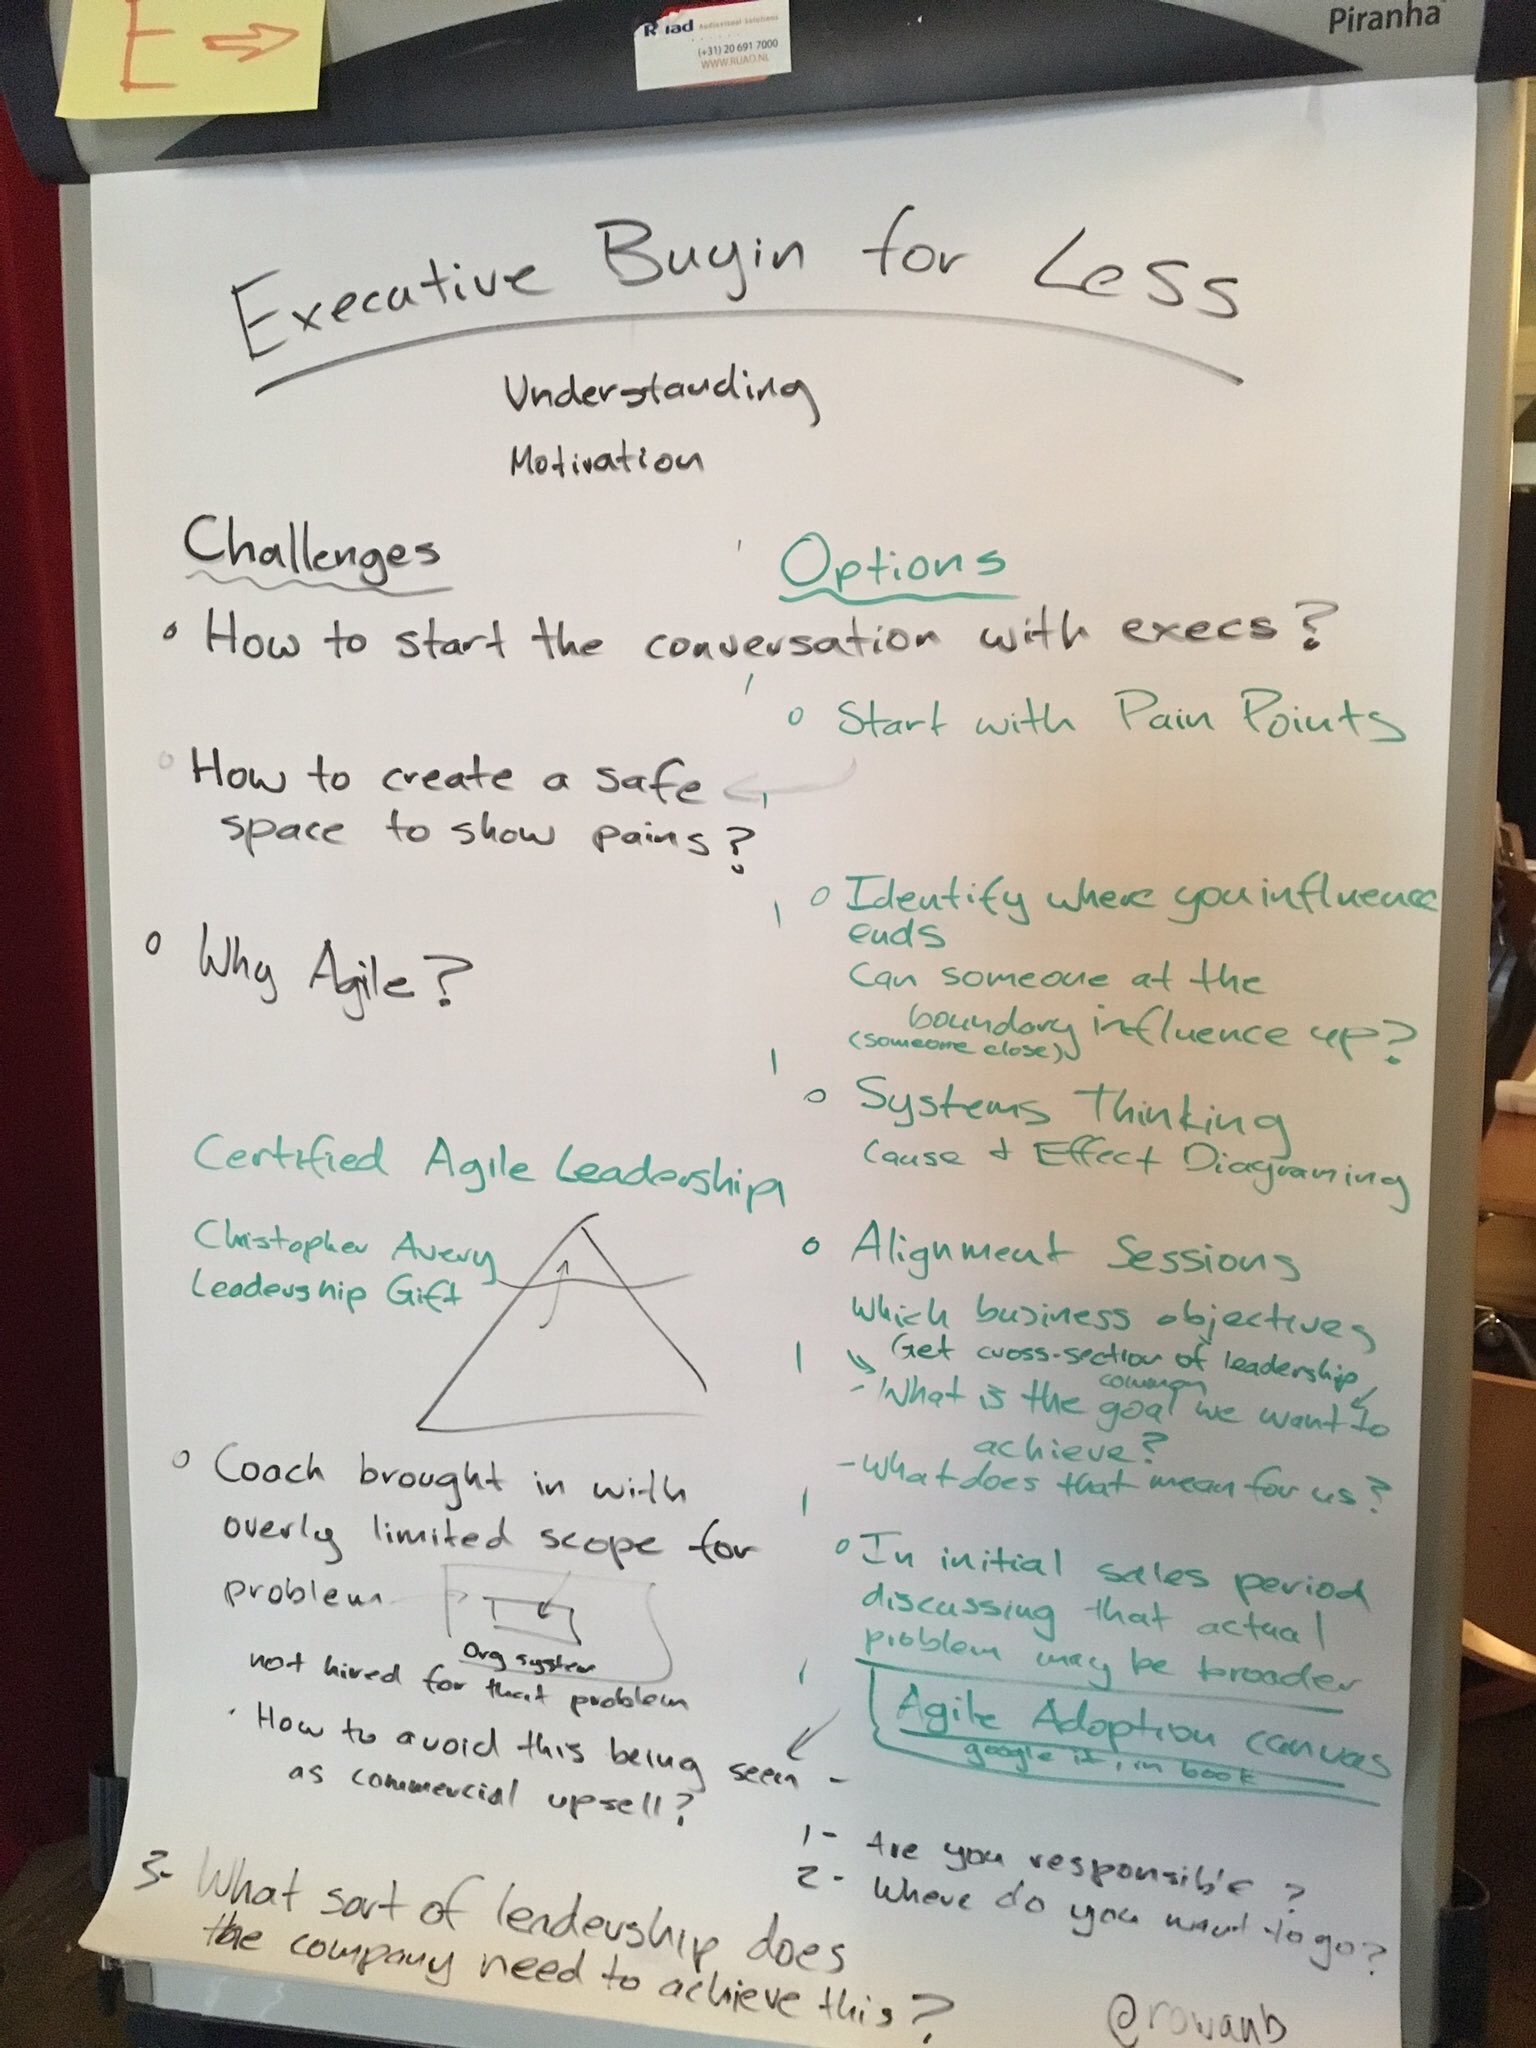 E
Ruad Audiovisual Solutions
(+31) 20 691 7000
WWW.RUAD.NL
Piranha
Executive Buyin for LeSS
Understanding
Motivation
Challenges
Options
How to start the conversation with execs?
Start with Pain Points
How to create a safe
space to show pains?
Identify where you influence
ends
Can someone at the
boundary influence up?
(someone close)
Why Agile?
Systems Thinking
Cause & Effect Diagraming
Certified Agile Leadership
Christopher Avery
Leadership Gift
Alignment Sessions
Which business objectives
Get cross-section of leadership
common
- What is the goal we want to
achieve?
- What does that mean for us?
Coach brought in with
overly limited scope for
problem
Org system
not hired for that problem
In initial sales period
discussing that actual
problem may be broader
Agile Adoption canvas
google it, in book
How to avoid this being seen -
as commercial upsell?
1- Are you responsible?
2- Where do you want to go?
3- What sort of leadership does
the company need to achieve this?
@rowanb